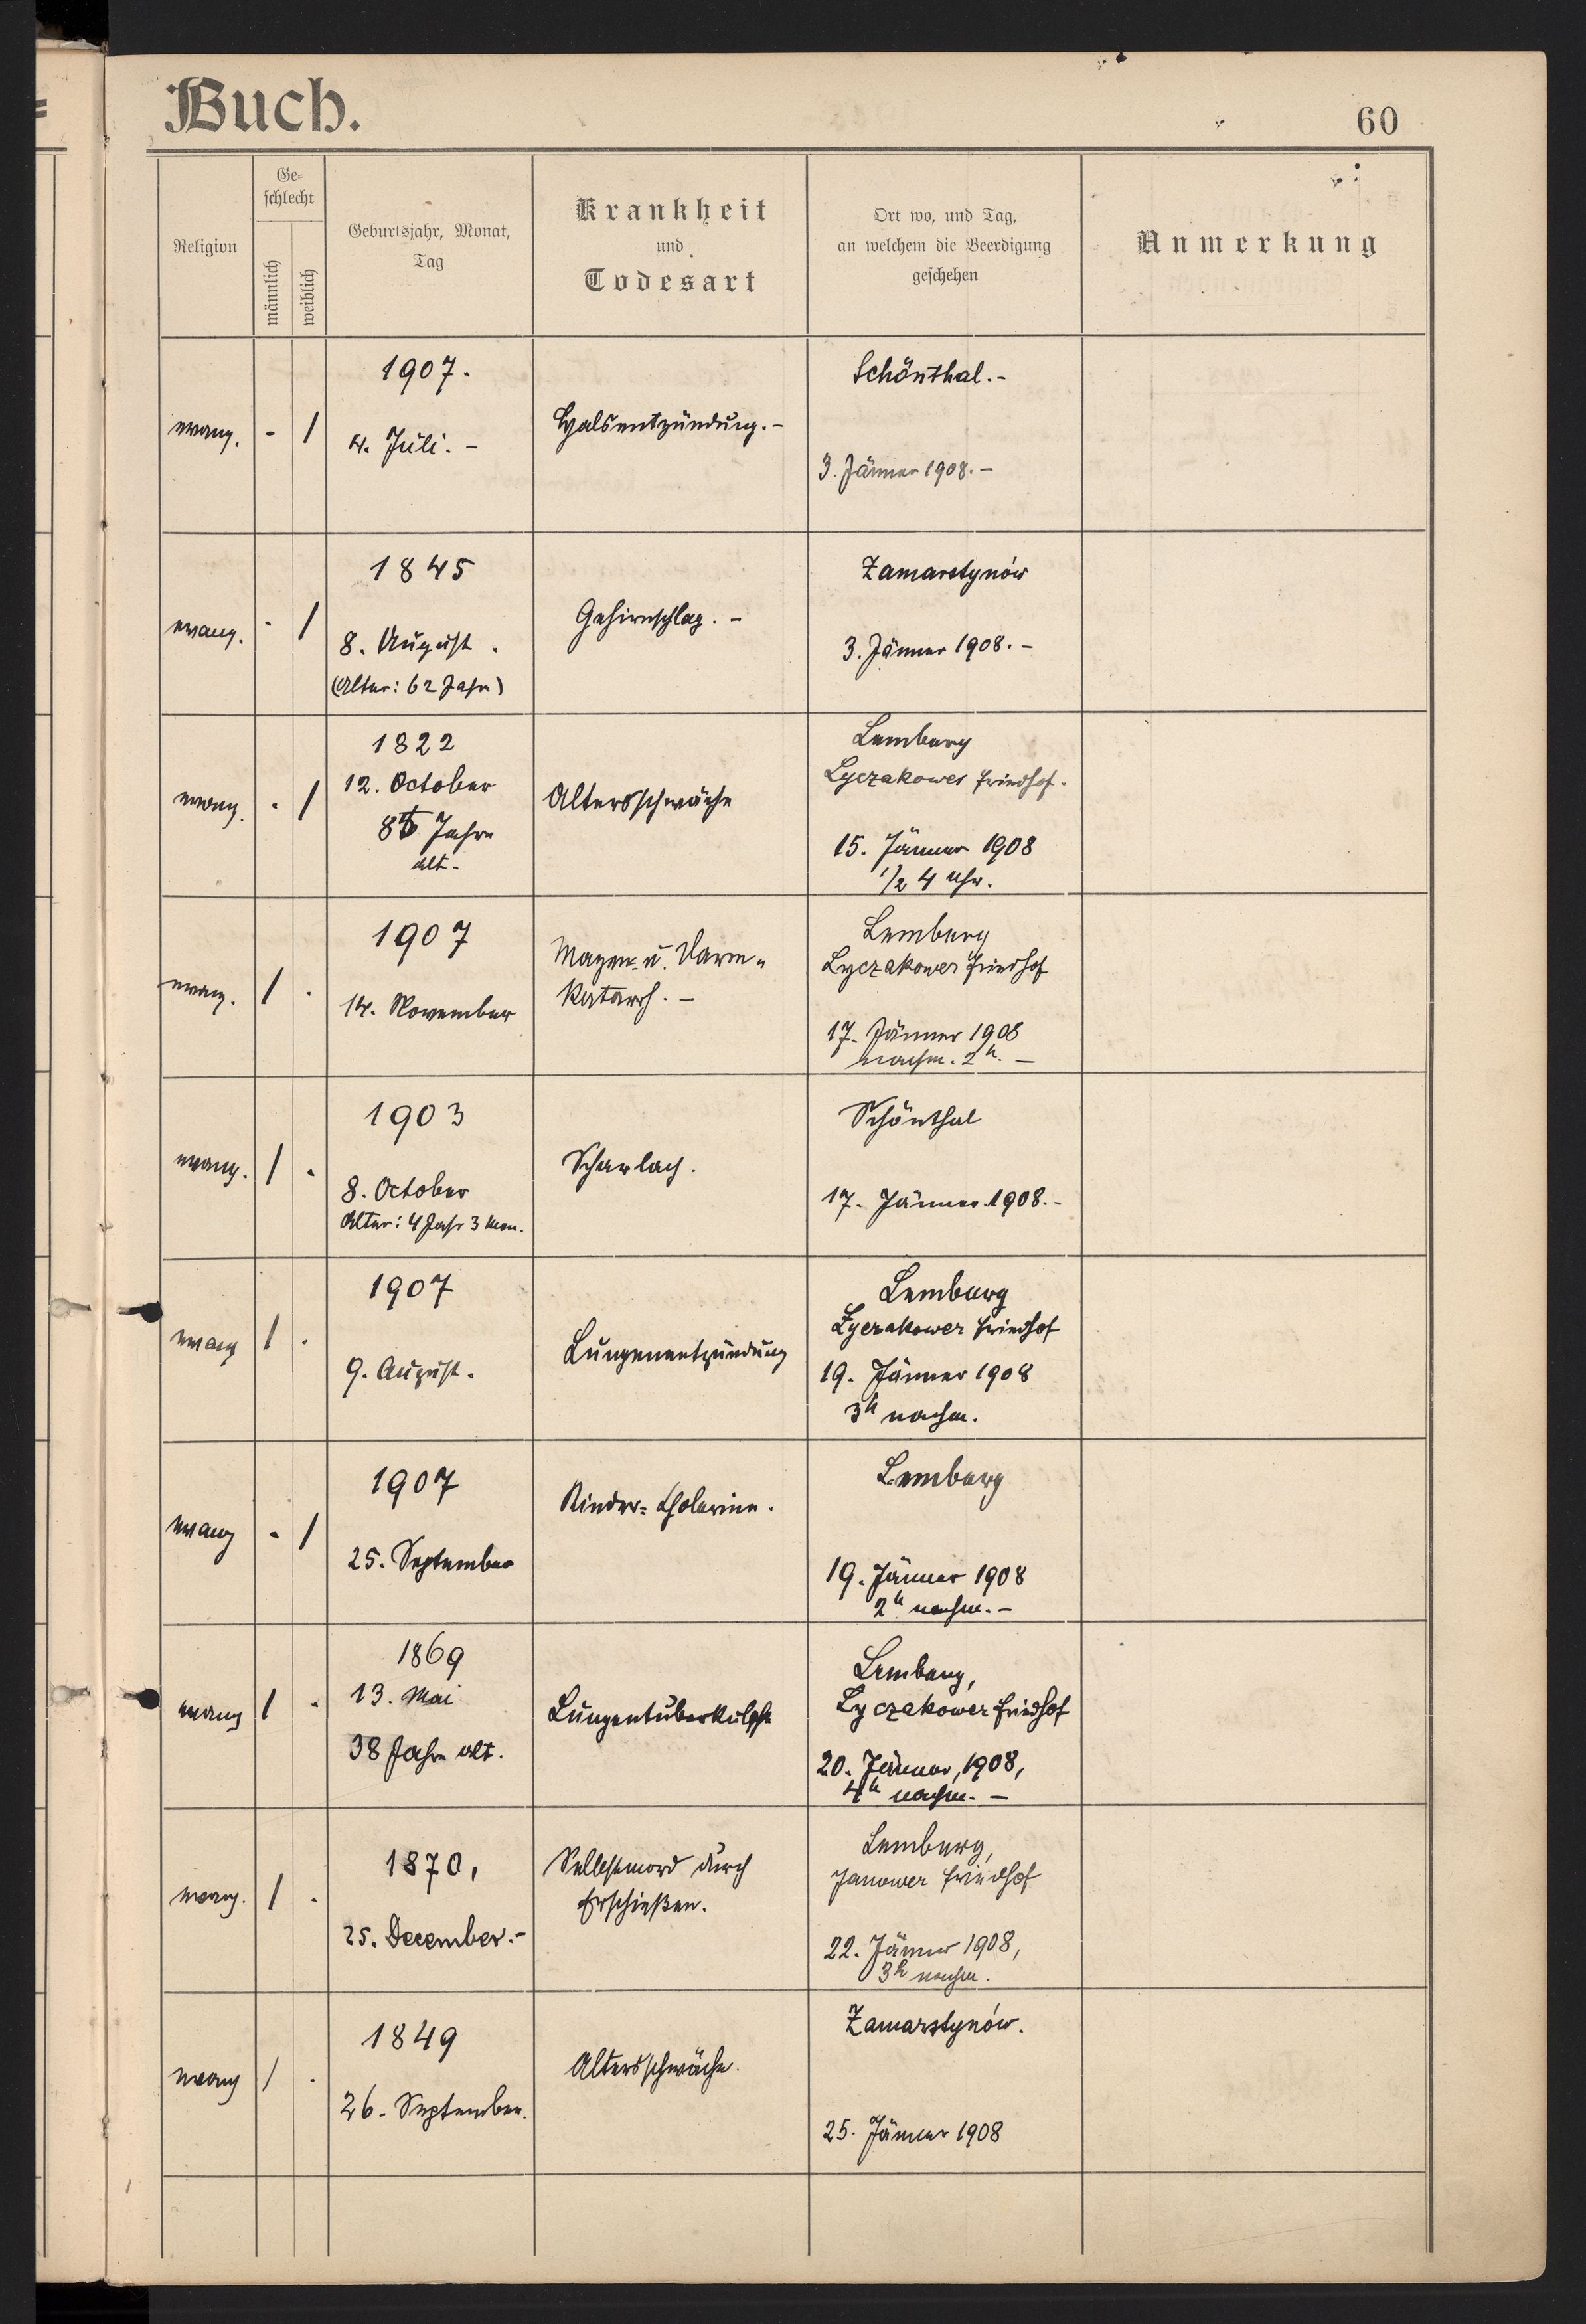 Buch.
60
Religion
Ge-
schlecht
männlich
weiblich
Geburtsjahr, Monat,
Tag
Krankheit
und
Todesart
Ort wo, und Tag,
an welchem die Beerdigung
geschehen
Anmerkung
evang.
-
/
1907.
4. Juli. -
Halsentzündung. -
Schönthal. -
3. Jänner 1908. -
evang.
-
/
1845
8. August.
(Alter: 62 Jahre)
Gehirnschlag. -
Zamarstynów
3. Jänner 1908. -
evang.
.
/
1822
12. October
Jahre
alt.
Altersschwäche
Lemberg
Lyczakower Friedhof.
15. Jänner 1908
1/2 4 Uhr.
evang.
/
.
1907
14. November
Magen- u. Darm-
Katarrh. -
Lemberg
Lyczakower Friedhof
17. Jänner 1908
nachm. 2h. -
evang.
/
.
1903
8. October
Alter: 4 Jahr 3 Mon.
Scharlach.
Schönthal
17. Jänner 1908. -
evang
/
.
1907
9. August.
Lungenentzündung
Lemberg
Lyczakower Friedhof
19. Jänner 1908
3h nachm.
evang
.
/
1907
25. September
Kinder-Cholerine.
Lemberg
19. Jänner 1908
2h nachm. -
evang
/
.
1869
13. Mai
38 Jahre alt.
Lungentuberkulose
Lemberg,
Lyczakower Friedhof
20. Jänner, 1908,
4h nachm. -
evang.
/
.
1870,
25. December. -
Selbstmord durch
Erschießen.
Lemberg,
Janower Friedhof
22. Jänner 1908,
3h nachm.
evang
/
.
1849
26. September.
Altersschwäche.
Zamarstynów.
25. Jänner 1908